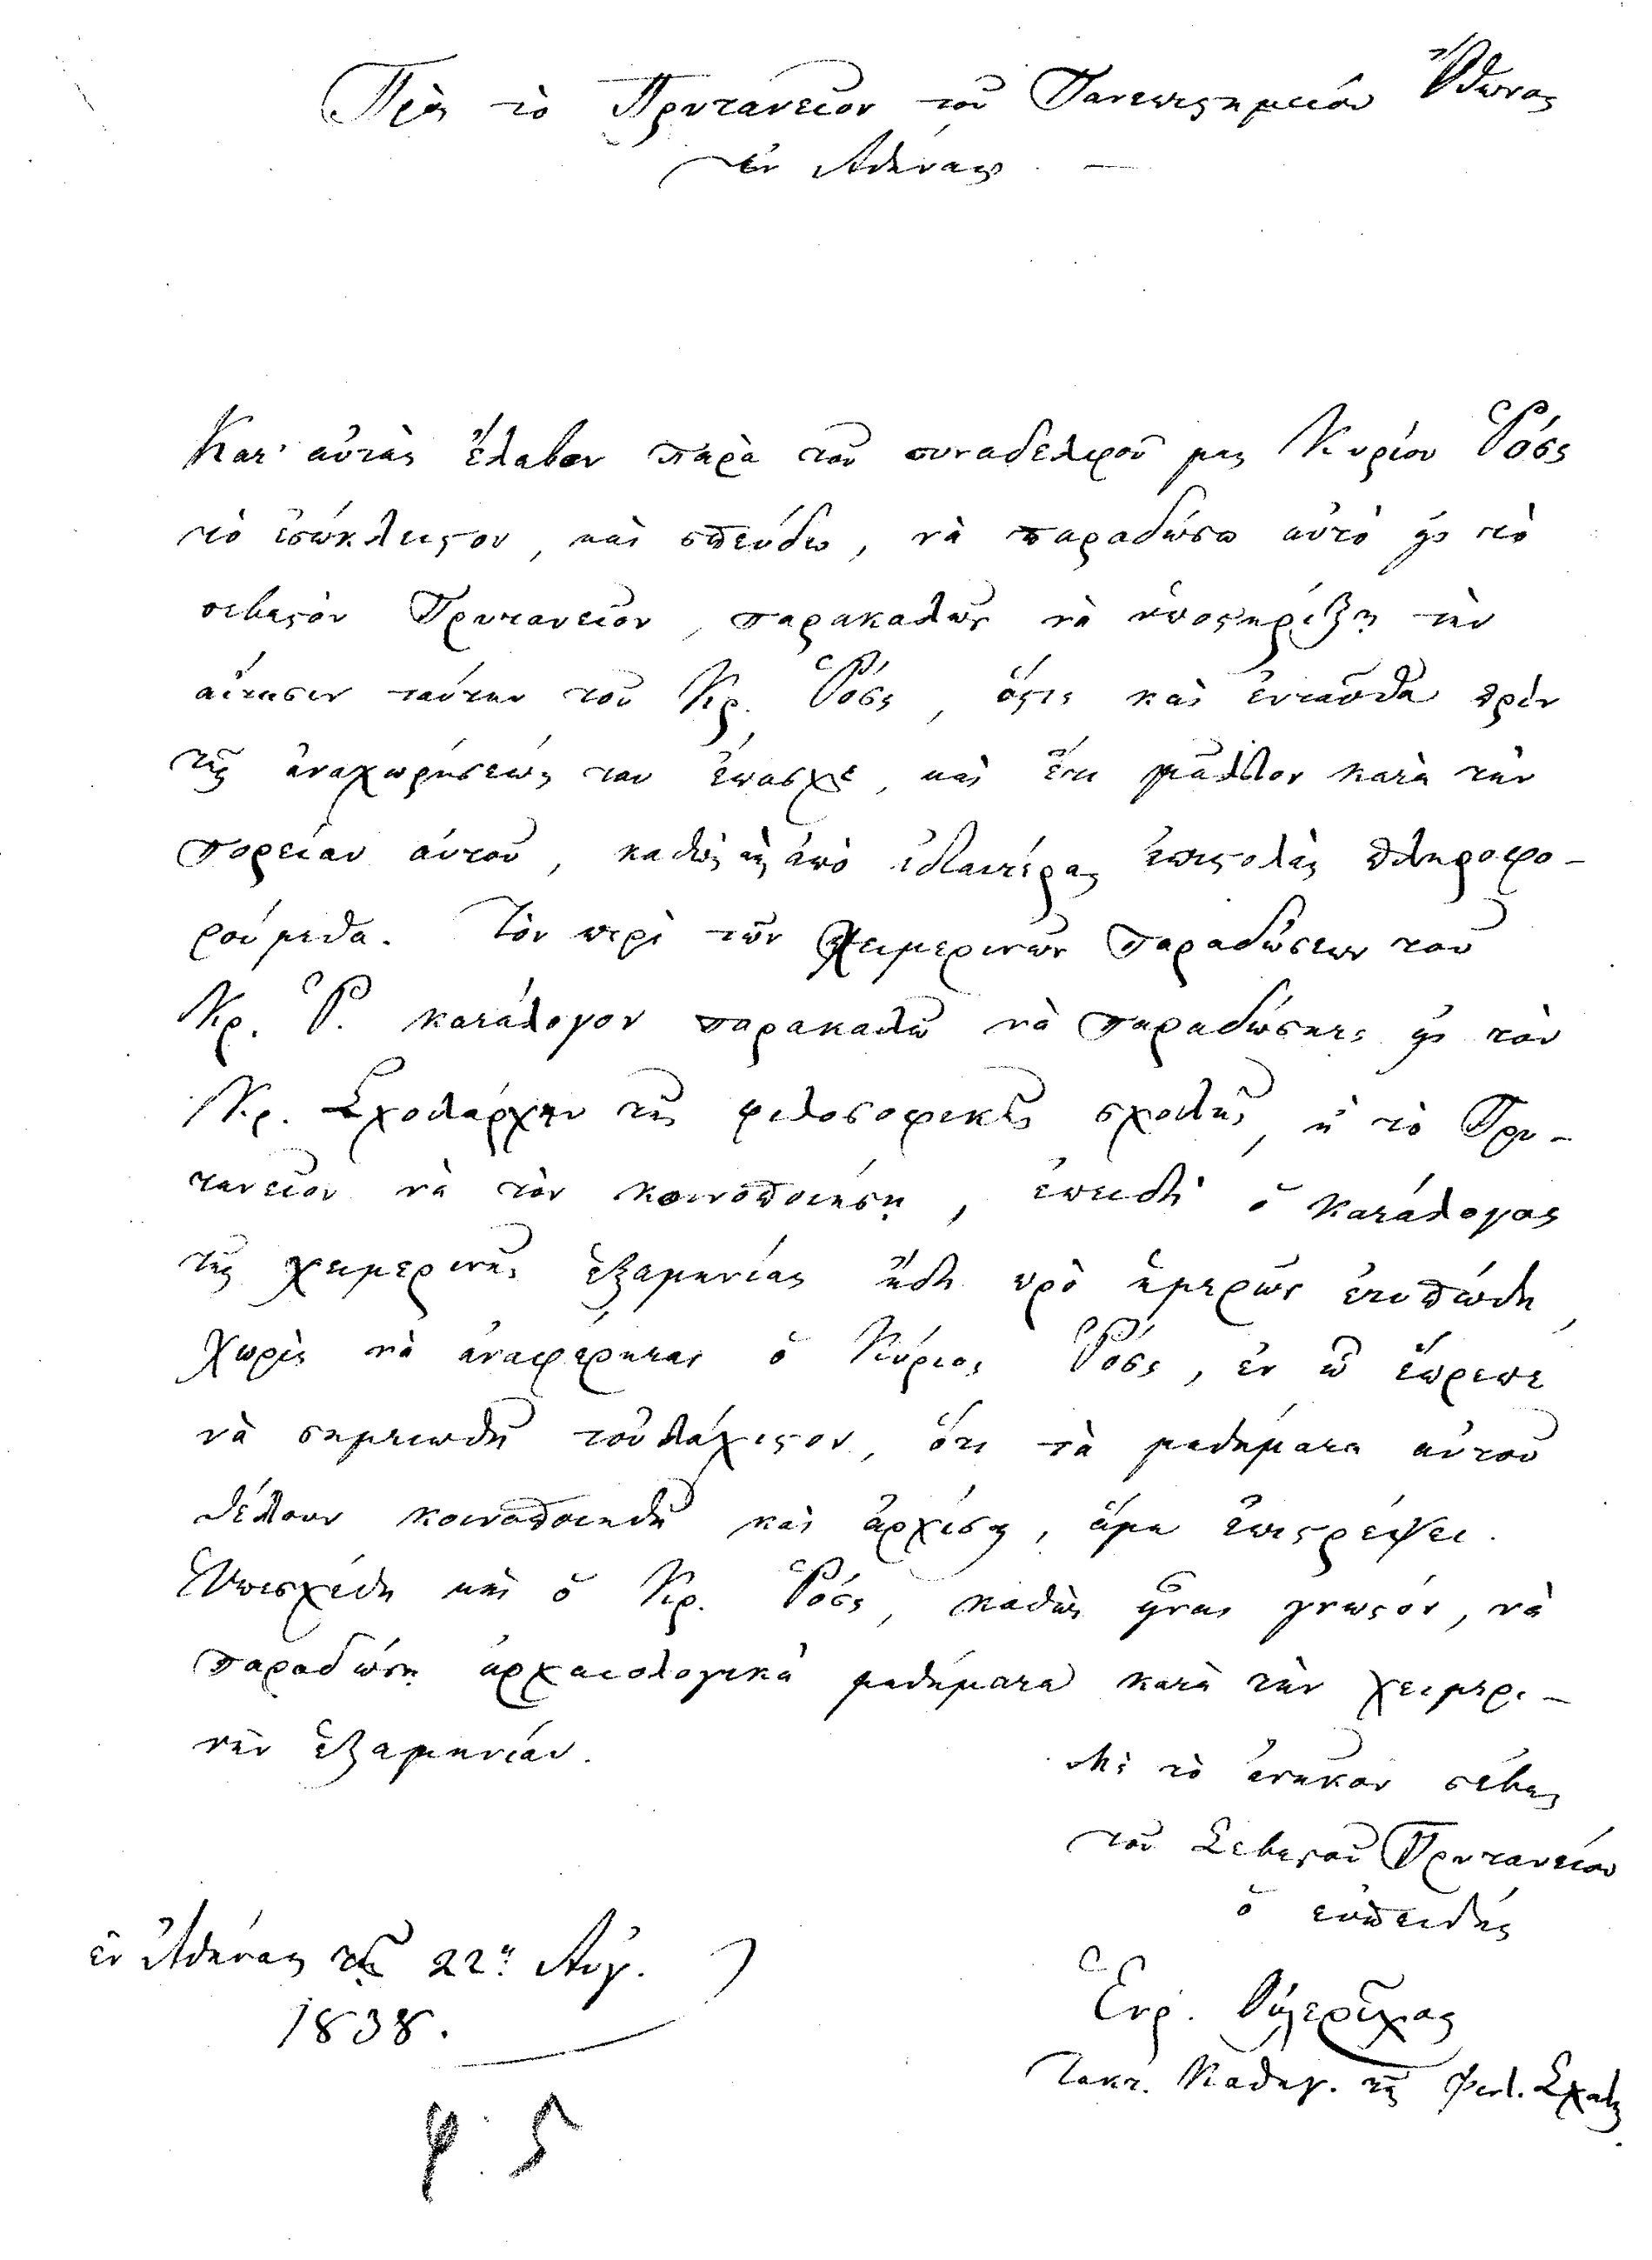 Πρὸς τὸ Πρυτανεῖον τοῦ Πανεπιστημείου Ὄθωνος
ἐν Ἀθήναις. —
Κατ' αὐτὰς ἔλαβον παρὰ τοῦ συναδελφοῦ μας Κυρίου Ῥόσς
τὸ ἐσώκλειστον, καὶ σπεύδω, νὰ παραδώσω αὐτὸ εἰς τὸ
σεβαστὸν Πρυτανεῖον, παρακαλῶν νὰ ὑποστηρίξῃ τὴν
αἴτησιν ταύτην τοῦ Κρ. Ῥόσς, ὅστις καὶ ἐνταῦθα πρὶν
τῆς ἀναχωρήσεώς του ἔπασχε, καὶ ἔτι μᾶλλον κατὰ τὴν
πορείαν αὐτοῦ, καθὼς ἀπὸ ἰδιαιτέρας ἐπιστολὰς πληροφο-
ρούμεθα. Τὸν περὶ τῶν χειμερινῶν παραδώσεων τοῦ
Κρ. Ῥ. κατάλογον παρακαλῶ νὰ παραδώσητε εἰς τὸν
Κρ. Σχολάρχην τῆς φιλοσοφικῆς σχολῆς, ἢ τὸ Πρυ-
τανεῖον νὰ τὸν κοινοποιήσῃ, ἐπειδὴ ὁ κατάλογος
τῆς χειμερινῆς ἑξαμηνίας ἤδη πρὸ ἡμερῶν ἐτυπώθη,
χωρὶς νὰ ἀναφέρηται ὁ Κύριος Ῥόσς, ἐν ᾧ ἔπρεπε
νὰ σημειωθῇ τοὐλάχιστον, ὅτι τὰ μαθήματα αὐτοῦ
θέλουν κοινοποιηθῆ καὶ ἀρχίσῃ, ἅμα ἐπιστρέψει.
Ὑπεσχέθη καὶ ὁ Κρ. Ῥόσς, καθὼς εἶναι γνωστόν, νὰ
παραδώσῃ ἀρχαιολογικὰ μαθήματα κατὰ τὴν χειμερι-
νὴν ἑξαμηνίαν.
Μὲ τὸ ἀνῆκον σέβας
τοῦ Σεβαστοῦ Πρυτανείου
ὁ εὐπειθὴς
ἐν Ἀθήναις τῇ 22ᾳ Αὐγ.
1838.
Ἑνρ. Οὐλερῖχος
Τακτ. Καθηγ. τῆς Φιλ. Σχολῆς.
φ. 5